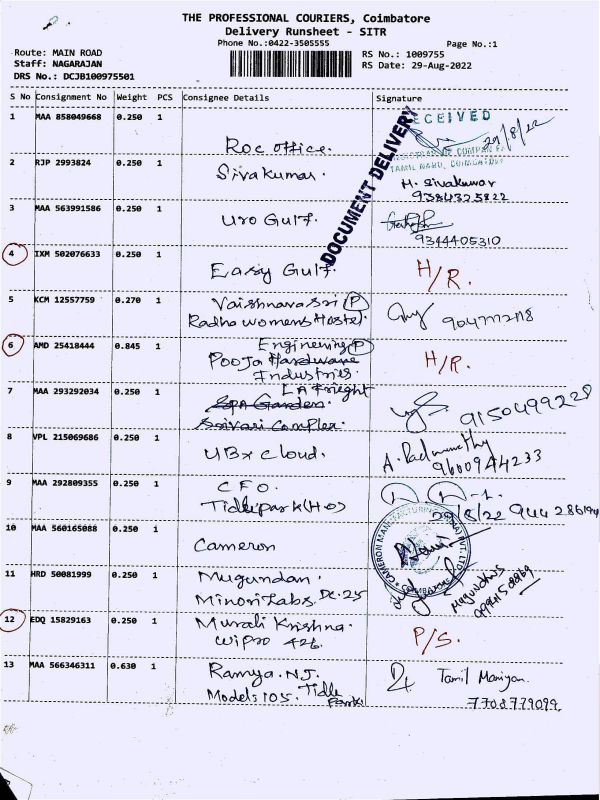 THE PROFESSIONAL COURIERS, Coimbatore
Delivery Runsheet - SITR
Phone No.:0422-3505555
Page No.:1
Route: MAIN ROAD
RS No.: 1009755
Staff: NAGARAJAN
RS Date: 29-Aug-2022
DRS No.: DCJB100975501
S No Consignment No Weight PCS Consignee Details Signature
1 MAA 858049668 0.250 1 Roc office. RECEIVED 29/8/22
TAMIL NADU, COIMBATORE
DOCUMENT DELIVERY
2 RJP 2993824 0.250 1 Sivakumar. H. Sivakumar
9384325822
3 MAA 563991586 0.250 1 Uro Gulf.
9344405310
4 IXM 502076633 0.250 1 Easy Gulf. H/R.
5 KCM 12557759 0.270 1 Vaishnava Sri (P)
Radha womens Hostel.
6 AMD 25418444 0.845 1 Enginening (P) H/R.
Pooja Hardware
Industries.
7 MAA 293292034 0.250 1 LA Frieght 9150499228
Spa Garden.
Srivari Complex.
8 VPL 215069686 0.250 1 UBx Cloud. A. Padmavathy
9600944233
9 MAA 292809355 0.250 1 CFO.
Tidle park (HO) 29/8/22
10 MAA 560165088 0.250 1 Cameron
11 HRD 50081999 0.250 1 Mugundan.
Minori Labs. Dc. 25
12 EDQ 15829163 0.250 1 Murali Krishna. P/S.
Wipro 426.
13 MAA 566346311 0.630 1 Ramya. N.J. Tamil Maniyan.
Models 105. Tidle Park 7708779099